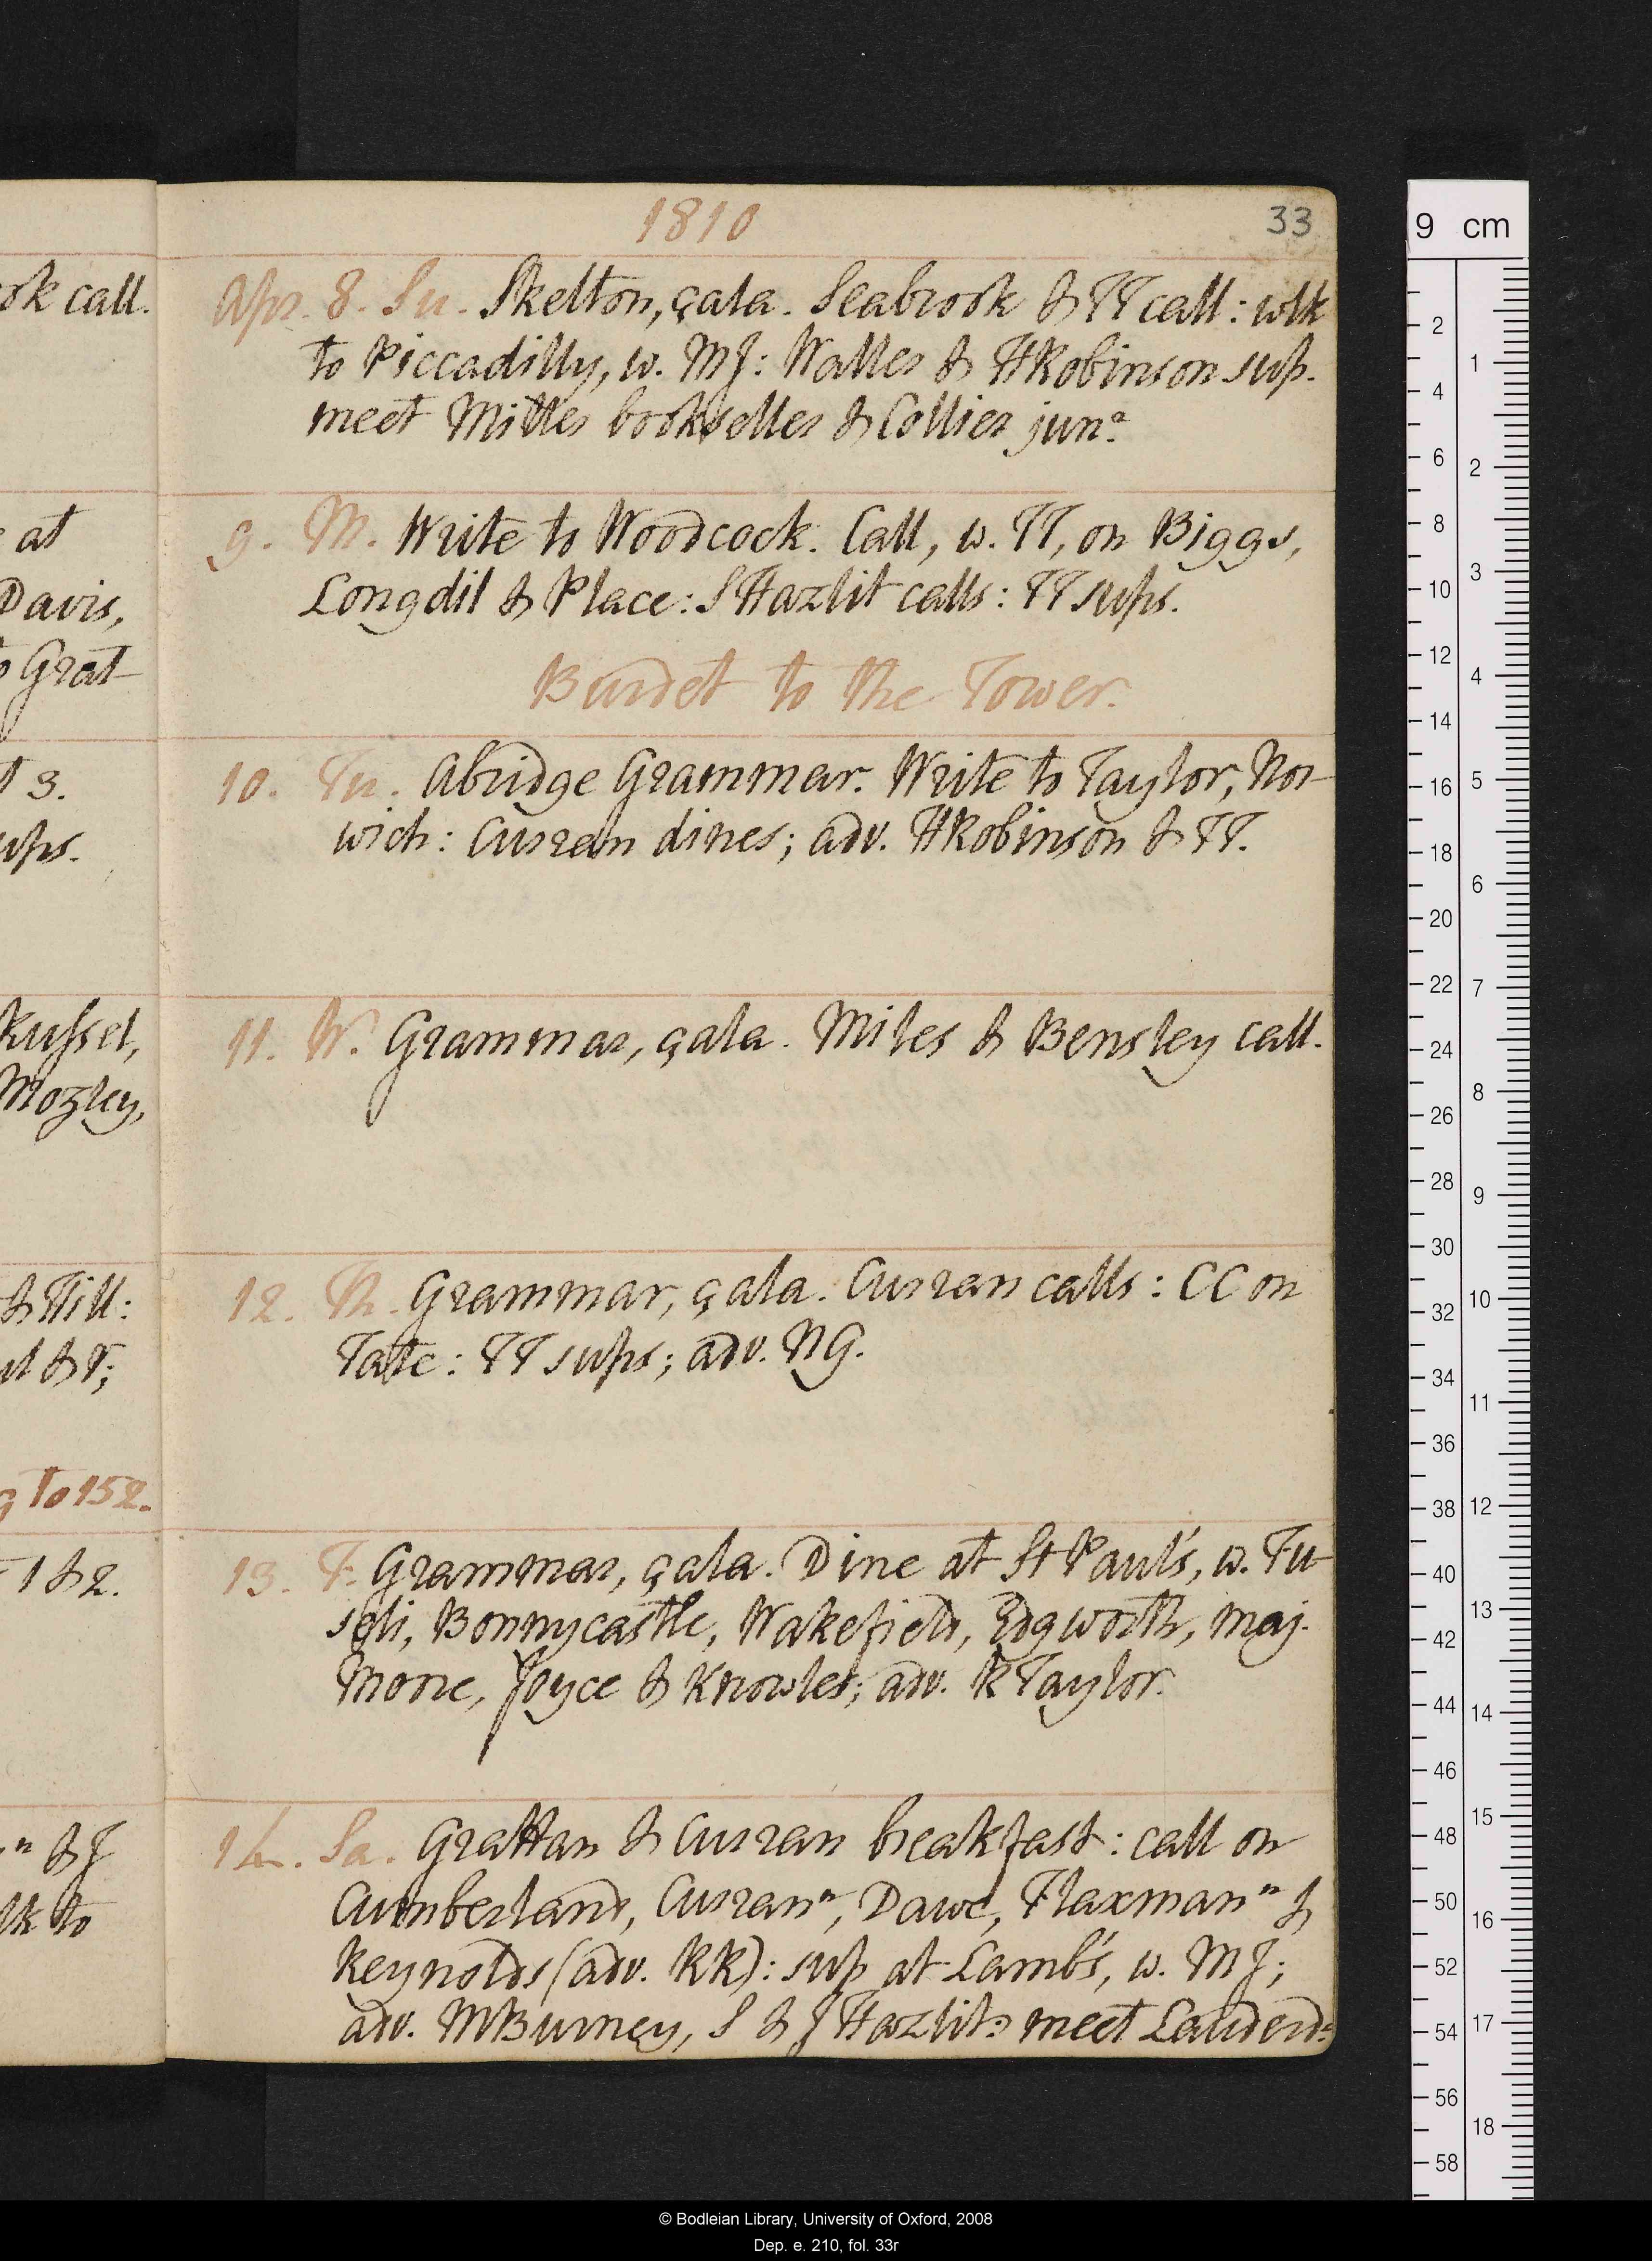 1810
33
ok call.
at
Davis,
Grat-
3.
ups.
Russel,
Mozley,
& Hill:
to 152.
1 & 2.
& J
lk to
Apr. 8. Su. Skelton, çala. Seabrook & TT call: wlk
to Piccadilly, w. MJ: Walker & HRobinson sup.
meet Miller bookseller & Collier junr.
9. M. Write to Woodcock. Call, w. TT, on Biggs,
Longdil & Place: S Hazlit calls: TT sups.
Burdet to the Tower.
10. Tu. Abridge Grammar. Write to Taylor, Nor-
wich: Curran dines; adv. HRobinson & TT.
11. W. Grammar, çala. Miles & Bensley call.
12. Th. Grammar, çala. Curran calls: CC on
Tate: TT sups; adv. NG.
13. F. Grammar, çala. Dine at St Paul's, w. Fu-
seli, Bonnycastle, Wakefield, Edgworth, maj.
Moore, Joyce & Knowles; adv. R Taylor.
14. Sa. Grattan & Curran breakfast: call on
Cumberland, Curran n, Dawe, Flaxman n &
Reynolds (adv. RR): sup at Lamb's, w. MJ;
adv. MBurney, S & J Hazlit: meet Lauderd:
9 cm
2
4
6
8
10
12
14
16
18
20
22
24
26
28
30
32
34
36
38
40
42
44
46
48
50
52
54
56
58
1
2
3
4
5
6
7
8
9
10
11
12
13
14
15
16
17
18
© Bodleian Library, University of Oxford, 2008
Dep. e. 210, fol. 33r